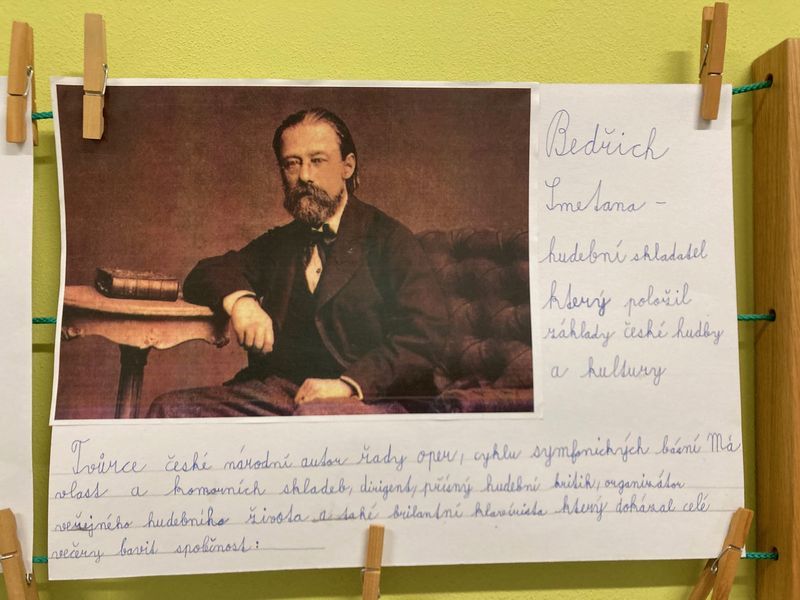 Bedřich
Smetana -
hudební skladatel
který položil
základy české hudby
a kultury
Tvůrce české národní autor řady oper, cyklu symfonických básní Má
vlast a komorních skladeb, dirigent, přísný hudební kritik, organizátor
veřejného hudebního života a také brilantní klavírista který dokázal celé
večery bavit společnost: